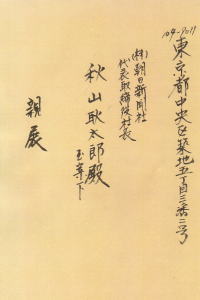 104-8011
東京都中央区築地五丁目三番二号
(株)朝日新聞社
代表取締役社長
秋山耿太郎殿
玉案下
親展